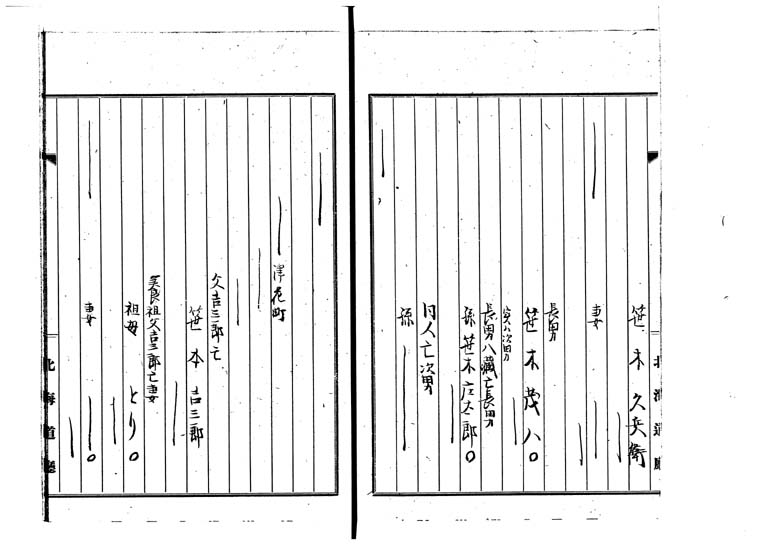 笹木久兵衛
妻
長男
笹木茂八
実ハ次男
長男八蔵亡長男
孫 笹木庄太郎
同人亡次男
孫
津花町
父吉三郎亡
笹本吉三郎
美良祖父吉三郎亡妻
祖母 とり
妻
北海道廳